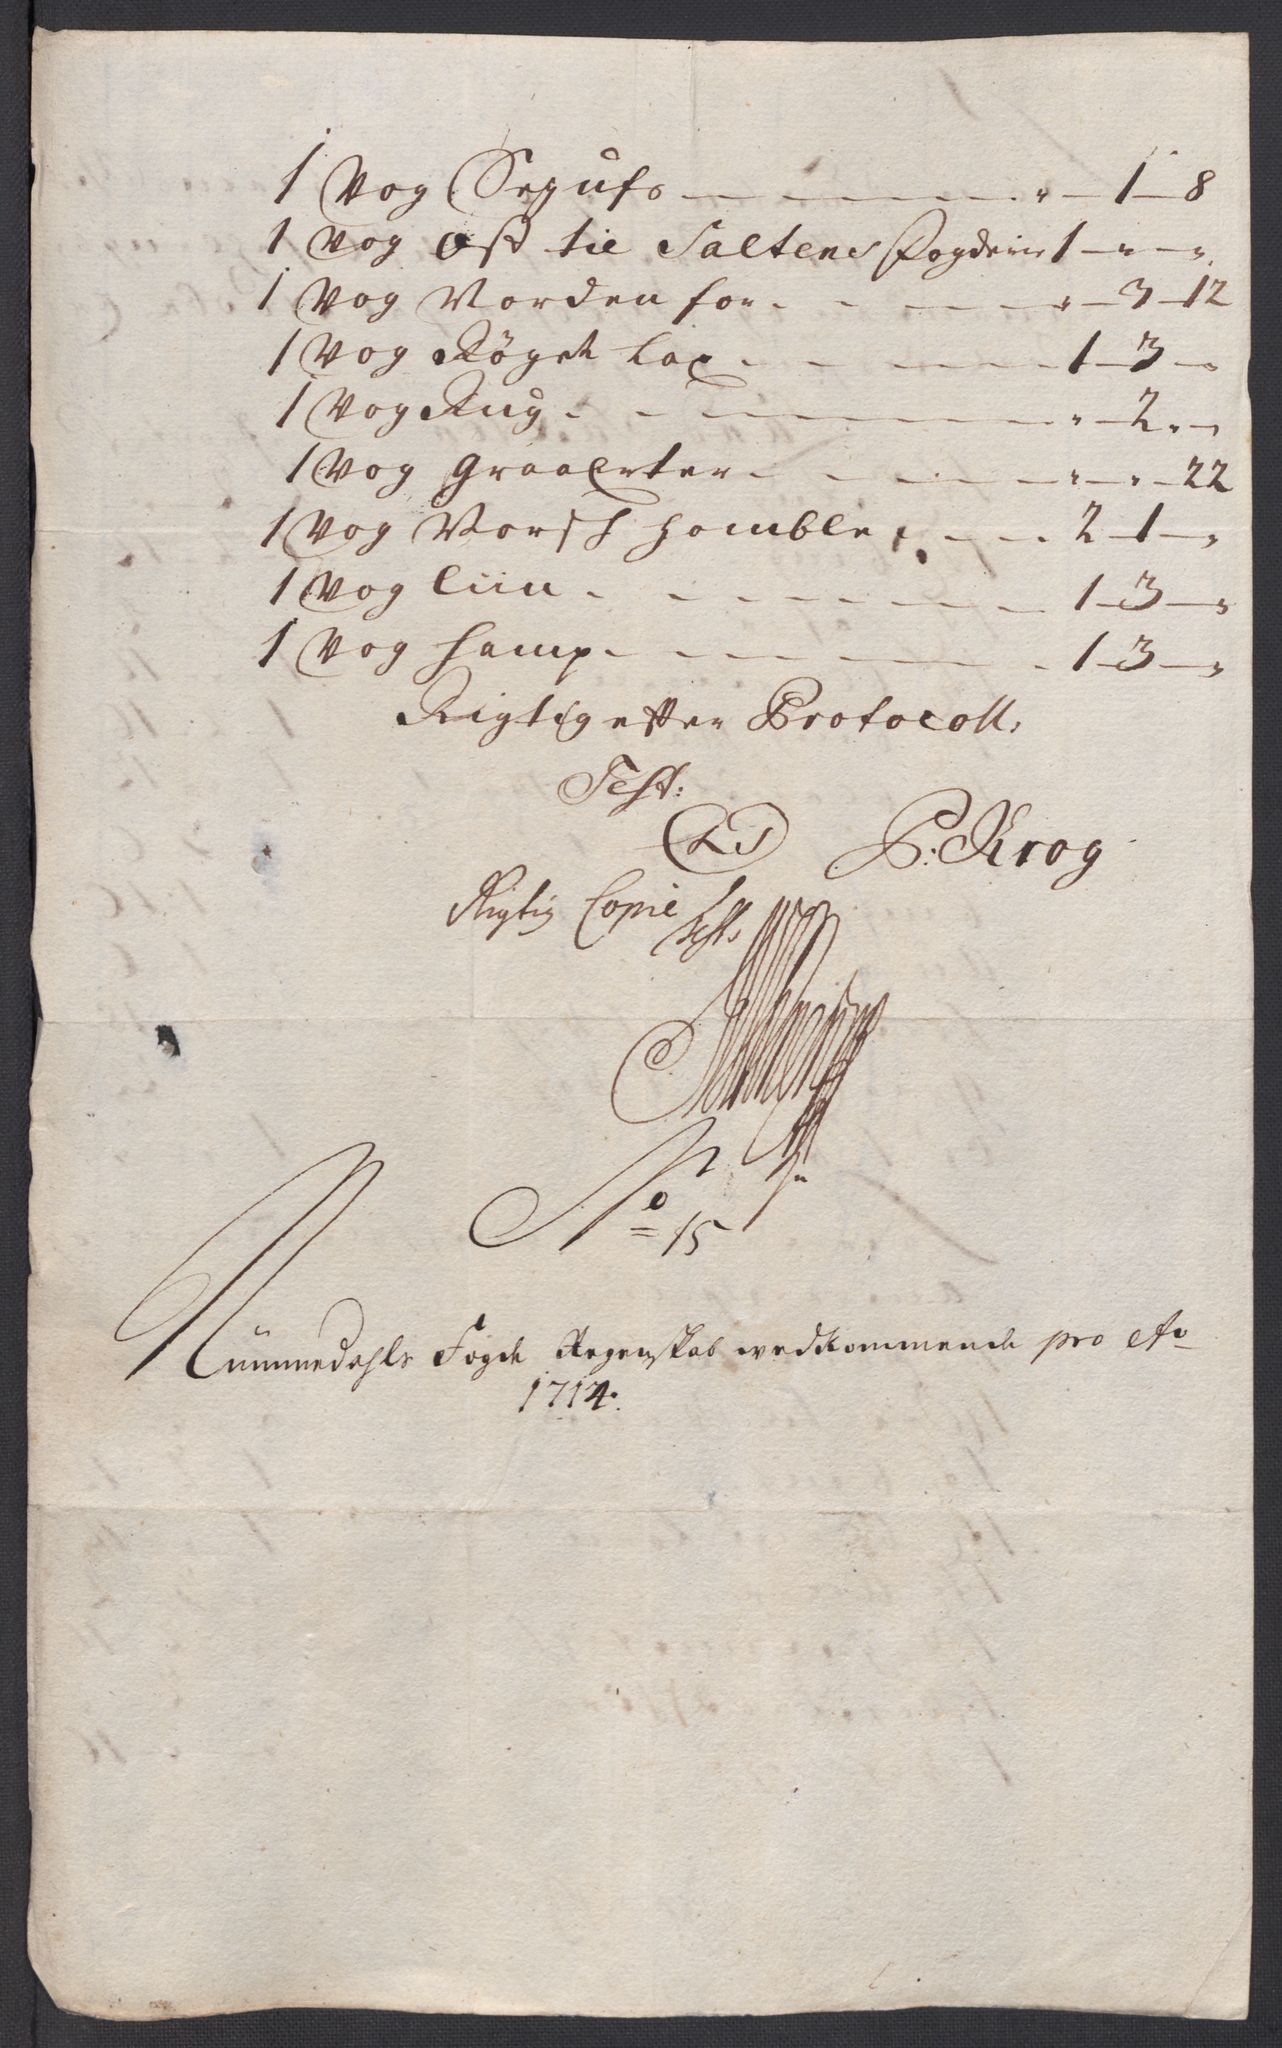 1 Vog Seyufs — — — — „ — 1 — 8
1 Vog Ost til Saltens Fogderie 1 — „ — „
1 Vog Norden for . — — — „ — 3 — 12
1 Vog Röget Lax . — — — 1 — 3 — „
1 Vog Rug . — — — „ — 2 „ — „
1 Vog Graa Erter . — — — „ — „ — 22
1 Vog Norsch Homble . — — 2 — 1 — „
1 Vog Liin . — — — 1 — 3 — „
1 Vog Hamp . — — — 1 — 3 — „
Rigtig efter Protocoll,
Test:
LS P: Krog
Rigtig Copie
Test:
No 15
Nummedahls Fogde Regenskab vedkommende pro Ao
1714.